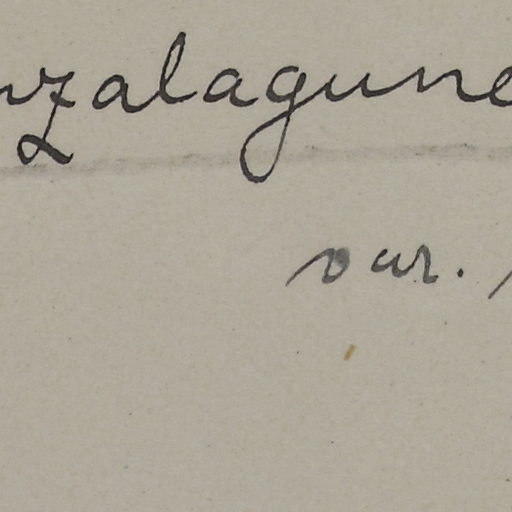 nzalagune
var.